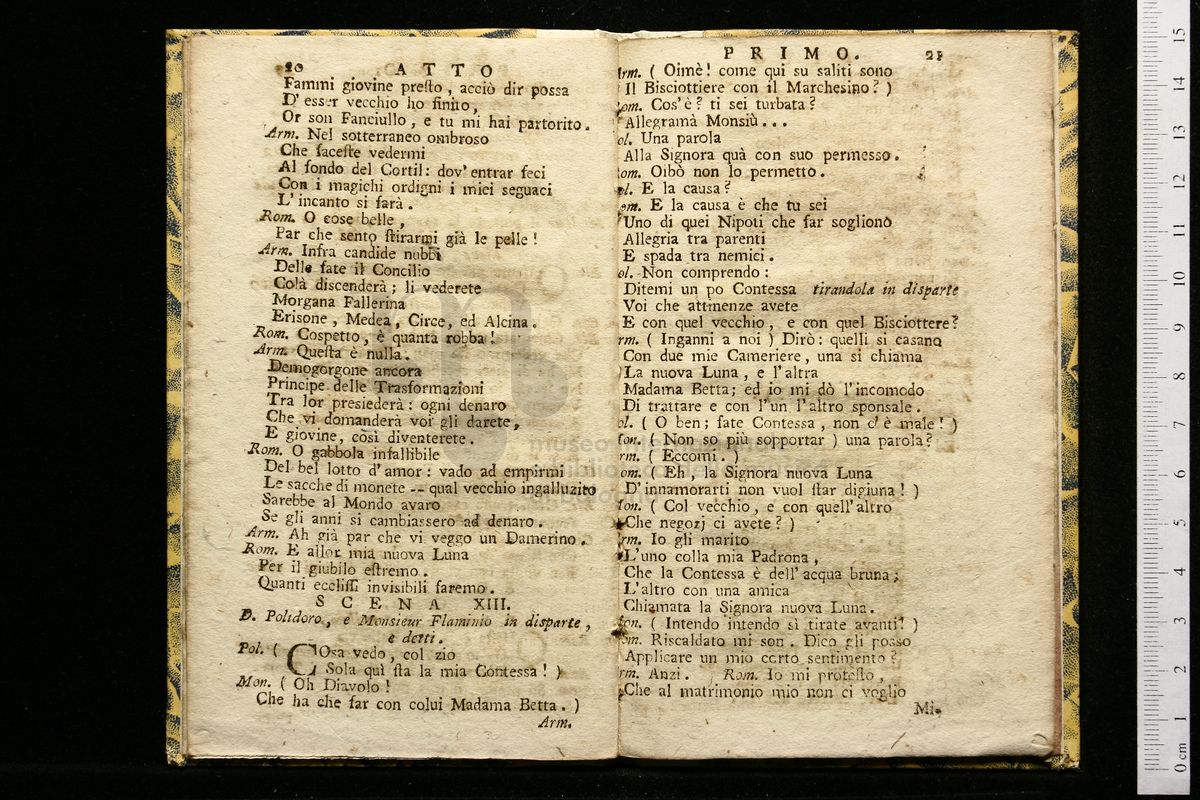 20 ATTO
Fammi giovine presto, acciò dir possa
D'esser vecchio ho finito,
Or son Fanciullo, e tu mi hai partorito.
Arm. Nel sotterraneo ombroso
Che faceste vedermi
Al fondo del Cortil: dov'entrar feci
Con i magichi ordigni i miei seguaci
L'incanto si farà.
Rom. O cose belle,
Par che sento stirarmi già le pelle!
Arm. Infra candide nubbi
Delle fate il Concilio
Colà discenderà; li vederete
Morgana Fallerina
Erisone, Medea, Circe, ed Alcina.
Rom. Cospetto, è quanta robba!
Arm. Questa è nulla.
Demogorgone ancora
Principe delle Trasformazioni
Tra lor presiederà: ogni denaro
Che vi domanderà voi gli darete,
E giovine, così diventerete.
Rom. O gabbola infallibile
Del bel lotto d'amor: vado ad empirmi
Le sacche di monete -- qual vecchio ingalluzito
Sarebbe al Mondo avaro
Se gli anni si cambiassero ad denaro.
Arm. Ah già par che vi veggo un Damerino.
Rom. E allor mia nuova Luna
Per il giubilo estremo.
Quanti ecclissi invisibili faremo.
SCENA XIII.
D. Polidoro, e Monsieur Flaminio in disparte,
e detti.
Pol. ( COsa vedo, col zio
Sola quì sta la mia Contessa! )
Mon. ( Oh Diavolo!
Che ha che far con colui Madama Betta. )
Arm.
PRIMO. 21
Arm. ( Oimè! come qui su saliti sono
Il Bisciottiere con il Marchesino? )
om. Cos'è? ti sei turbata?
Allegramà Monsiù...
ol. Una parola
Alla Signora quà con suo permesso.
om. Oibò non lo permetto.
ol. E la causa?
om. E la causa è che tu sei
Uno di quei Nipoti che far sogliono
Allegria tra parenti
E spada tra nemici.
ol. Non comprendo:
Ditemi un po Contessa tirandola in disparte
Voi che attinenze avete
E con quel vecchio, e con quel Bisciottere?
rm. ( Inganni a noi ) Dirò: quelli si casano
Con due mie Cameriere, una si chiama
La nuova Luna, e l'altra
Madama Betta; ed io mi dò l'incomodo
Di trattare e con l'un l'altro sponsale.
ol. ( O ben; fate Contessa, non c'è male! )
on. ( Non so più sopportar ) una parola?
rm. ( Eccomi. )
om. ( Eh, la Signora nuova Luna
D'innamorarti non vuol star digiuna! )
on. ( Col vecchio, e con quell'altro
Che negozj ci avete? )
rm. Io gli marito
L'uno colla mia Padrona,
Che la Contessa è dell'acqua bruna;
L'altro con una amica
Chiamata la Signora nuova Luna.
on. ( Intendo intendo si tirate avanti! )
om. Riscaldato mi son. Dico gli posso
Applicare un mio certo sentimento?
rm. Anzi. Rom. Io mi protesto,
Che al matrimonio mio non ci voglio
Mi-